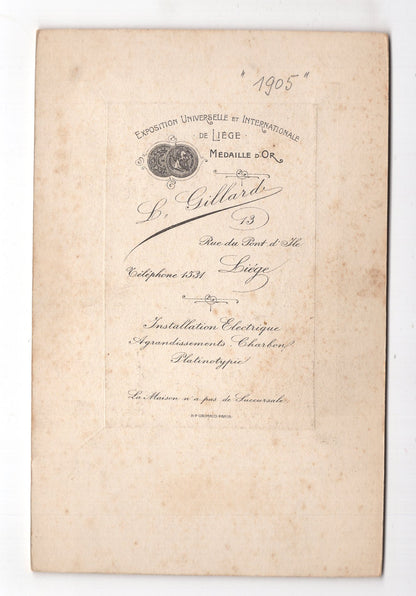 " 1905 "
EXPOSITION UNIVERSELLE ET INTERNATIONALE
DE LIÉGE
MÉDAILLE D'OR
L. Gillard
13
Rue du Pont d'Ile
Téléphone 1531 Liége
Installation Electrique
Agrandissements Charbon
Platinotypie
La Maison n'a pas de Succursale